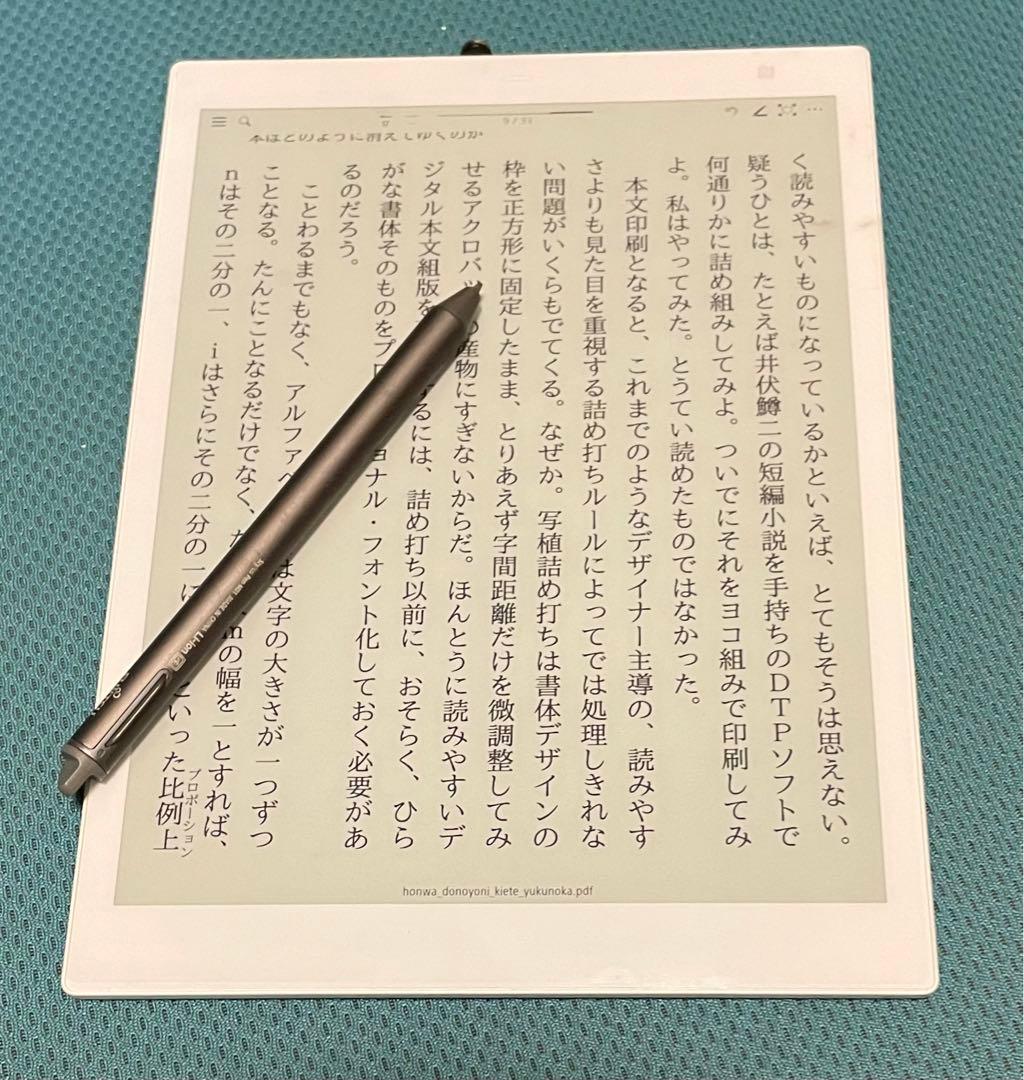 9/31
本はどのように消えてゆくのか
く読みやすいものになっているかといえば、とてもそうは思えない。
疑うひとは、たとえば井伏鱒二の短編小説を手持ちのDTPソフトで
何通りかに詰め組みしてみよ。ついでにそれをヨコ組みで印刷してみ
よ。私はやってみた。とうてい読めたものではなかった。
本文印刷となると、これまでのようなデザイナー主導の、読みやす
さよりも見た目を重視する詰め打ちルールによってでは処理しきれな
い問題がいくらもでてくる。なぜか。写植詰め打ちは書体デザインの
枠を正方形に固定したまま、とりあえず字間距離だけを微調整してみ
せるアクロバッ 産物にすぎないからだ。ほんとうに読みやすいデ
ジタル本文組版を るには、詰め打ち以前に、おそらく、ひら
がな書体そのものをプロ ョナル・フォント化しておく必要があ
るのだろう。
ことわるまでもなく、アルファベ は文字の大きさが一つずつ
ことなる。たんにことなるだけでなく、 mの幅を一とすれば、
nはその二分の一、iはさらにその二分の一に いった比例上
プロポーション
honwa_donoyoni_kiete_yukunoka.pdf
Li-ion